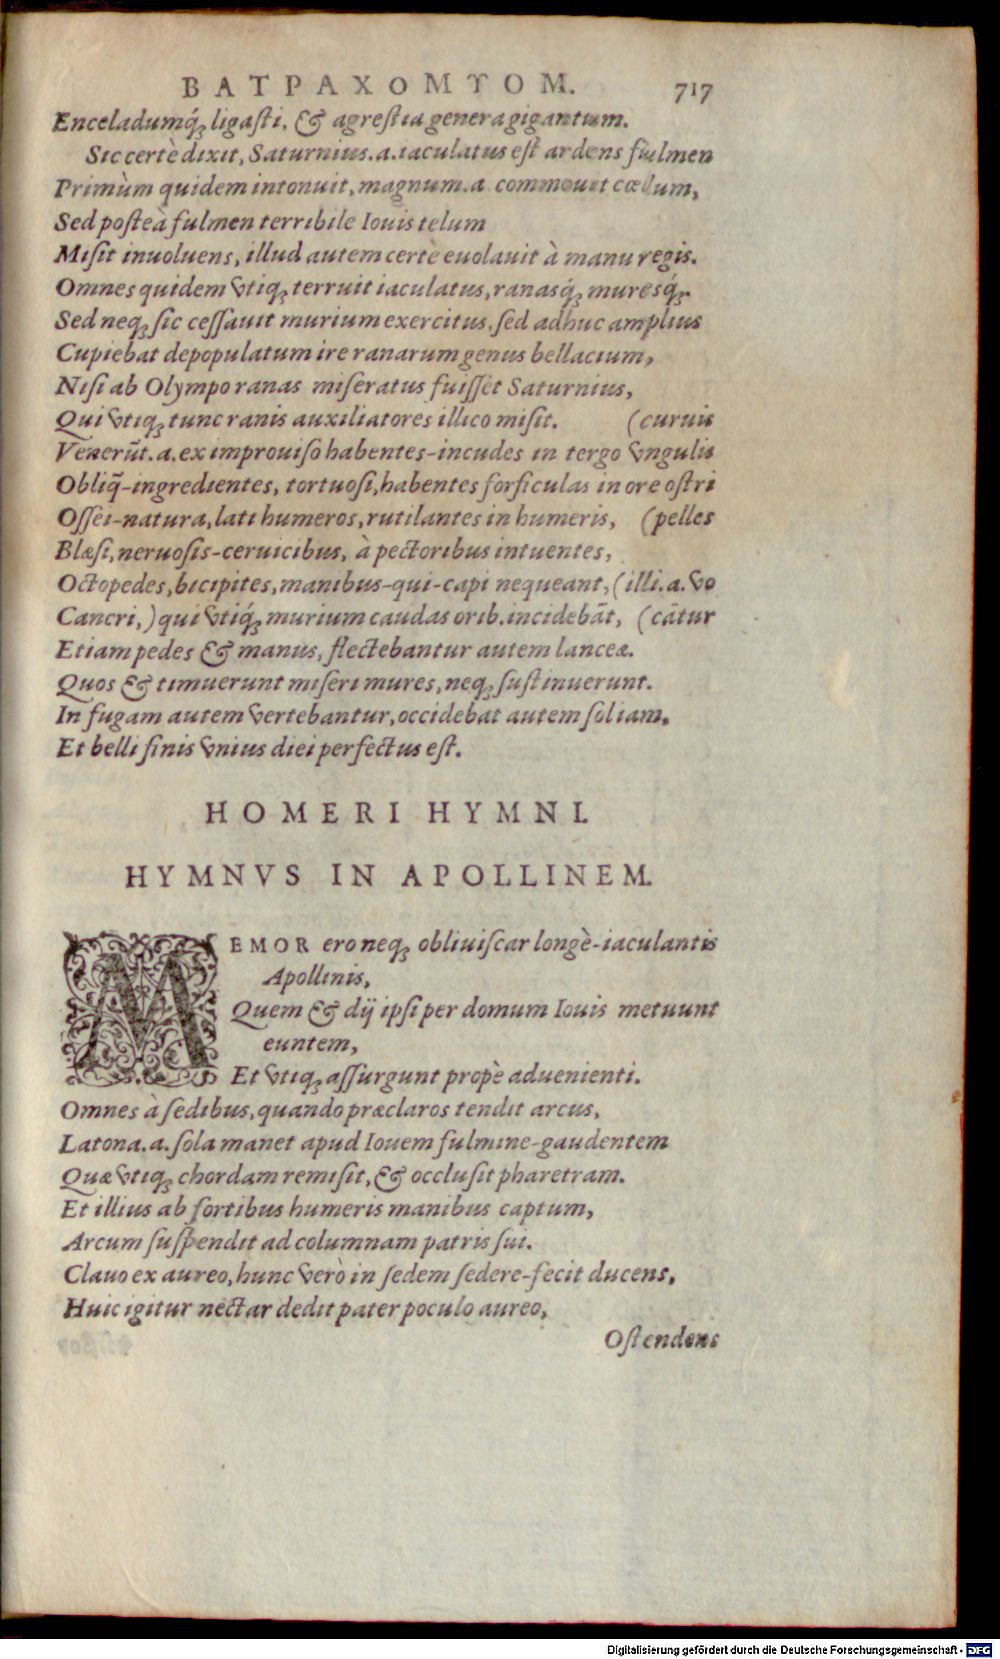 ΒΑΤΡΑΧΟΜΥΟΜ. 717
Enceladumq́; ligasti, & agrestia genera gigantum.
Sic certè dixit, Saturnius.a.iaculatus est ardens fulmen
Primùm quidem intonuit, magnum.a commouit cœlum,
Sed posteà fulmen terribile Iouis telum
Misit inuoluens, illud autem certè euolauit à manu regis.
Omnes quidem vtiq; terruit iaculatus, ranasq́; muresq́;.
Sed neq; sic cessauit murium exercitus, sed adhuc amplius
Cupiebat depopulatum ire ranarum genus bellacium,
Nisi ab Olympo ranas miseratus fuisset Saturnius,
Qui vtiq; tunc ranis auxiliatores illico misit. (curuis
Venerūt.a.ex improuiso habentes-incudes in tergo vngulis
Obliq̃-ingredientes, tortuosi, habentes forficulas in ore ostri
Ossei-natura, lati humeros, rutilantes in humeris, (pelles
Blæsi, neruosis-ceruicibus, à pectoribus intuentes,
Octopedes, bicipites, manibus-qui-capi nequeant, (illi.a.vo
Cancri,) qui vtiq́; murium caudas orib.incidebāt, (cātur
Etiam pedes & manus, flectebantur autem lanceæ.
Quos & timuerunt miseri mures, neq; sustinuerunt.
In fugam autem vertebantur, occidebat autem sol iam,
Et belli finis vnius diei perfectus est.
HOMERI HYMNI.
HYMNVS IN APOLLINEM.
MEMOR ero neq; obliuiscar longè-iaculantis
Apollinis,
Quem & dij ipsi per domum Iouis metuunt
euntem,
Et vtiq; assurgunt propè aduenienti.
Omnes à sedibus, quando præclaros tendit arcus,
Latona.a.sola manet apud Iouem fulmine-gaudentem
Quæ vtiq; chordam remisit, & occlusit pharetram.
Et illius ab fortibus humeris manibus captum,
Arcum suspendit ad columnam patris sui.
Clauo ex aureo, hunc verò in sedem sedere-fecit ducens,
Huic igitur nectar dedit pater poculo aureo,
Ostendens
Digitalisierung gefördert durch die Deutsche Forschungsgemeinschaft - DFG